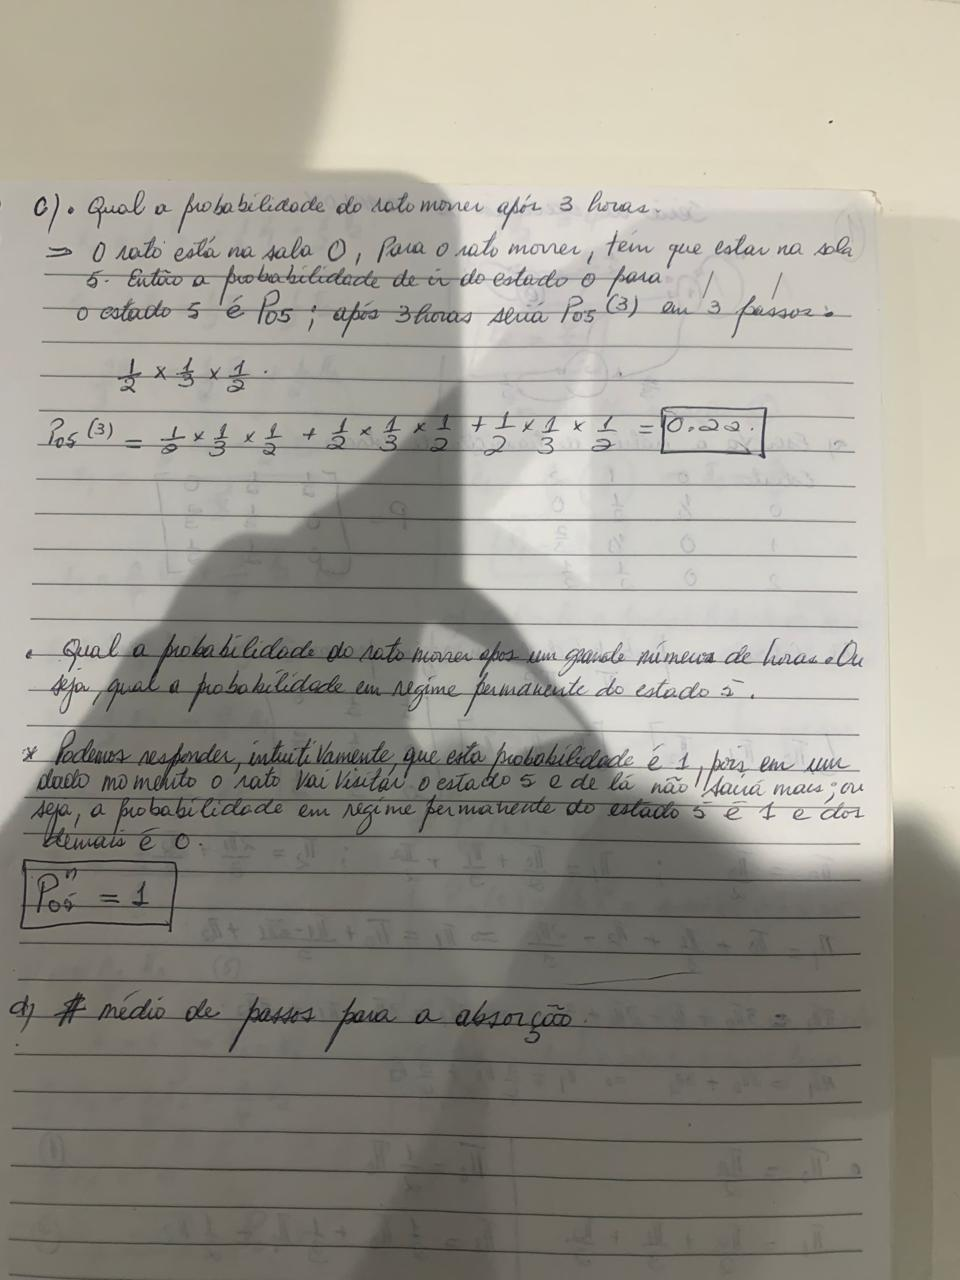 c). Qual a probabilidade do rato morrer após 3 horas.
⇒ O rato está na sala 0, Para o rato morrer, tem que estar na sala
5. Então a probabilidade de ir do estado 0 para
o estado 5 é P05 ; após 3 horas seria P05 (3) em 3 passos:
1/2 × 1/3 × 1/2 .
P05 (3) = 1/2 × 1/3 × 1/2 + 1/2 × 1/3 × 1/2 + 1/2 × 1/3 × 1/2 = 0.22.
• Qual a probabilidade do rato morrer apos um grande número de horas. Ou
seja, qual a probabilidade em regime permanente do estado 5.
* Podemos responder, intuitivamente, que esta probabilidade é 1, pois em um
dado momento o rato vai visitar o estado 5 e de lá não sairá mais; ou
seja, a probabilidade em regime permanente do estado 5 é 1 e dos
demais é 0.
P05 n = 1
d) # médio de passos para a absorção.